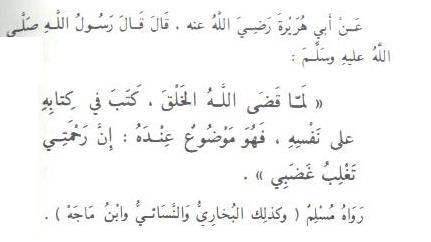 عَـنْ أَبي هُرَيْرةَ رَضِـيَ اللهُ عنه ، قَالَ قَـالَ رَسُـولُ اللَّـهِ صَلَّـى
اللَّهُ عليهِ وسَلَّـمَ :
« لَمّـا قَضَى اللَّـهُ الخَلْقَ ، كَتَبَ في كِتابِهِ
على نَفْسِهِ ، فَهُوَ مَوْضُوعٌ عِنْـدَهُ : إِنَّ رَحْمَتِـي
تَغْلِبُ غَضَبِي » .
رَوَاهُ مُسْلِمٌ ( وكذلِك البُخاريُّ والنَّسَائـيُّ وابْنُ مَاجَهْ ) .